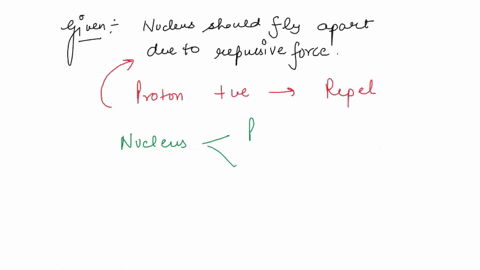 Given :- Nucleus should fly apart
due to repulsive force.
Proton +ve → Repel
Nucleus < P